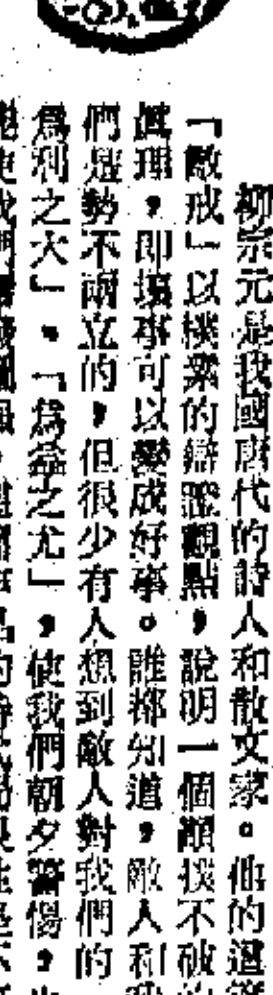 柳宗元是我國唐代的詩人和散文家。他的這
「敵戒」以樸素的辯證觀點，說明一個顛撲不破的
眞理，即壞事可以變成好事。誰都知道，敵人和我
們是勢不兩立的，但很少有人想到敵人對我們的
爲利之大」，「爲益之尤」，使我們朝夕警惕，